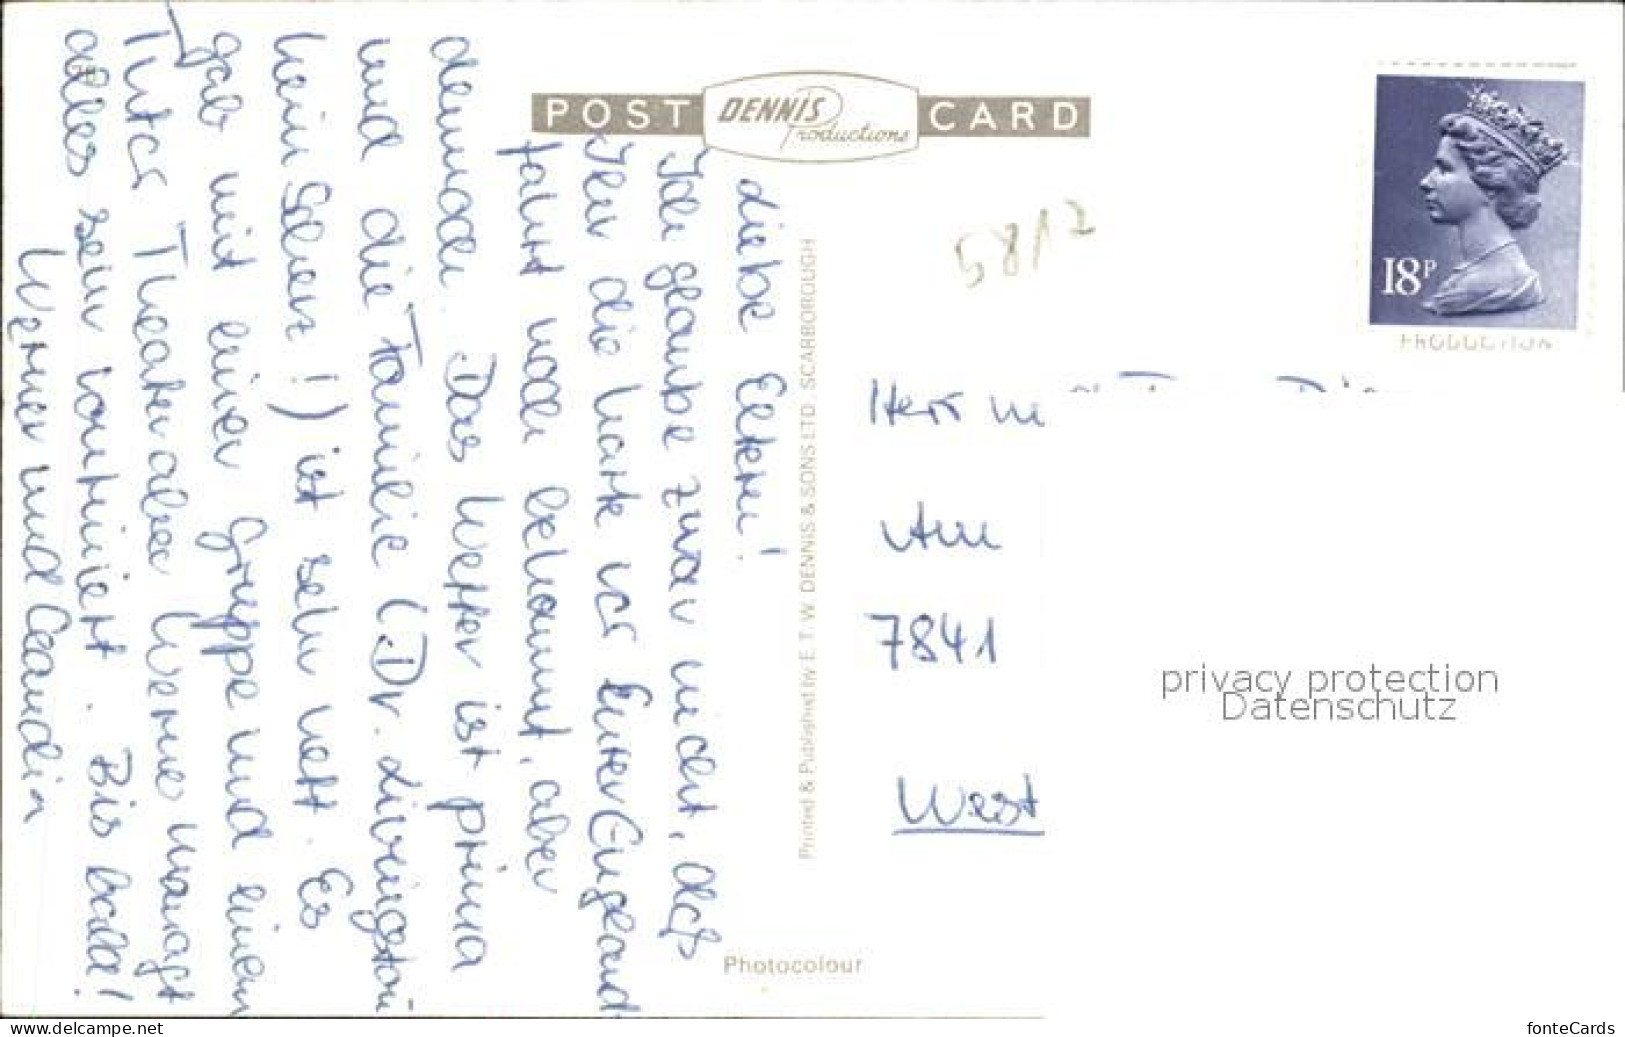 POST DENNIS Productions CARD
18P
PRODUCTION
5817
Liebe Eltern!
Ich glaube zwar nicht, daß
Ihr die Karte vor Eurer England
fahrt noch bekommt, aber
dennoch. Das Wetter ist prima
und die Familie (Dr. Livingston
kein Scherz!) ist sehr nett. Es
gab mit einer Gruppe und einem
Theater aber Werner managt
alles sein routiniert. Bis bald!
Werner und Claudia
Printed & Published by E. T. W. DENNIS & SONS LTD. SCARBOROUGH
Photocolour
Herr
Am
7841
West
privacy protection
Datenschutz
www.delcampe.net
fonteCards